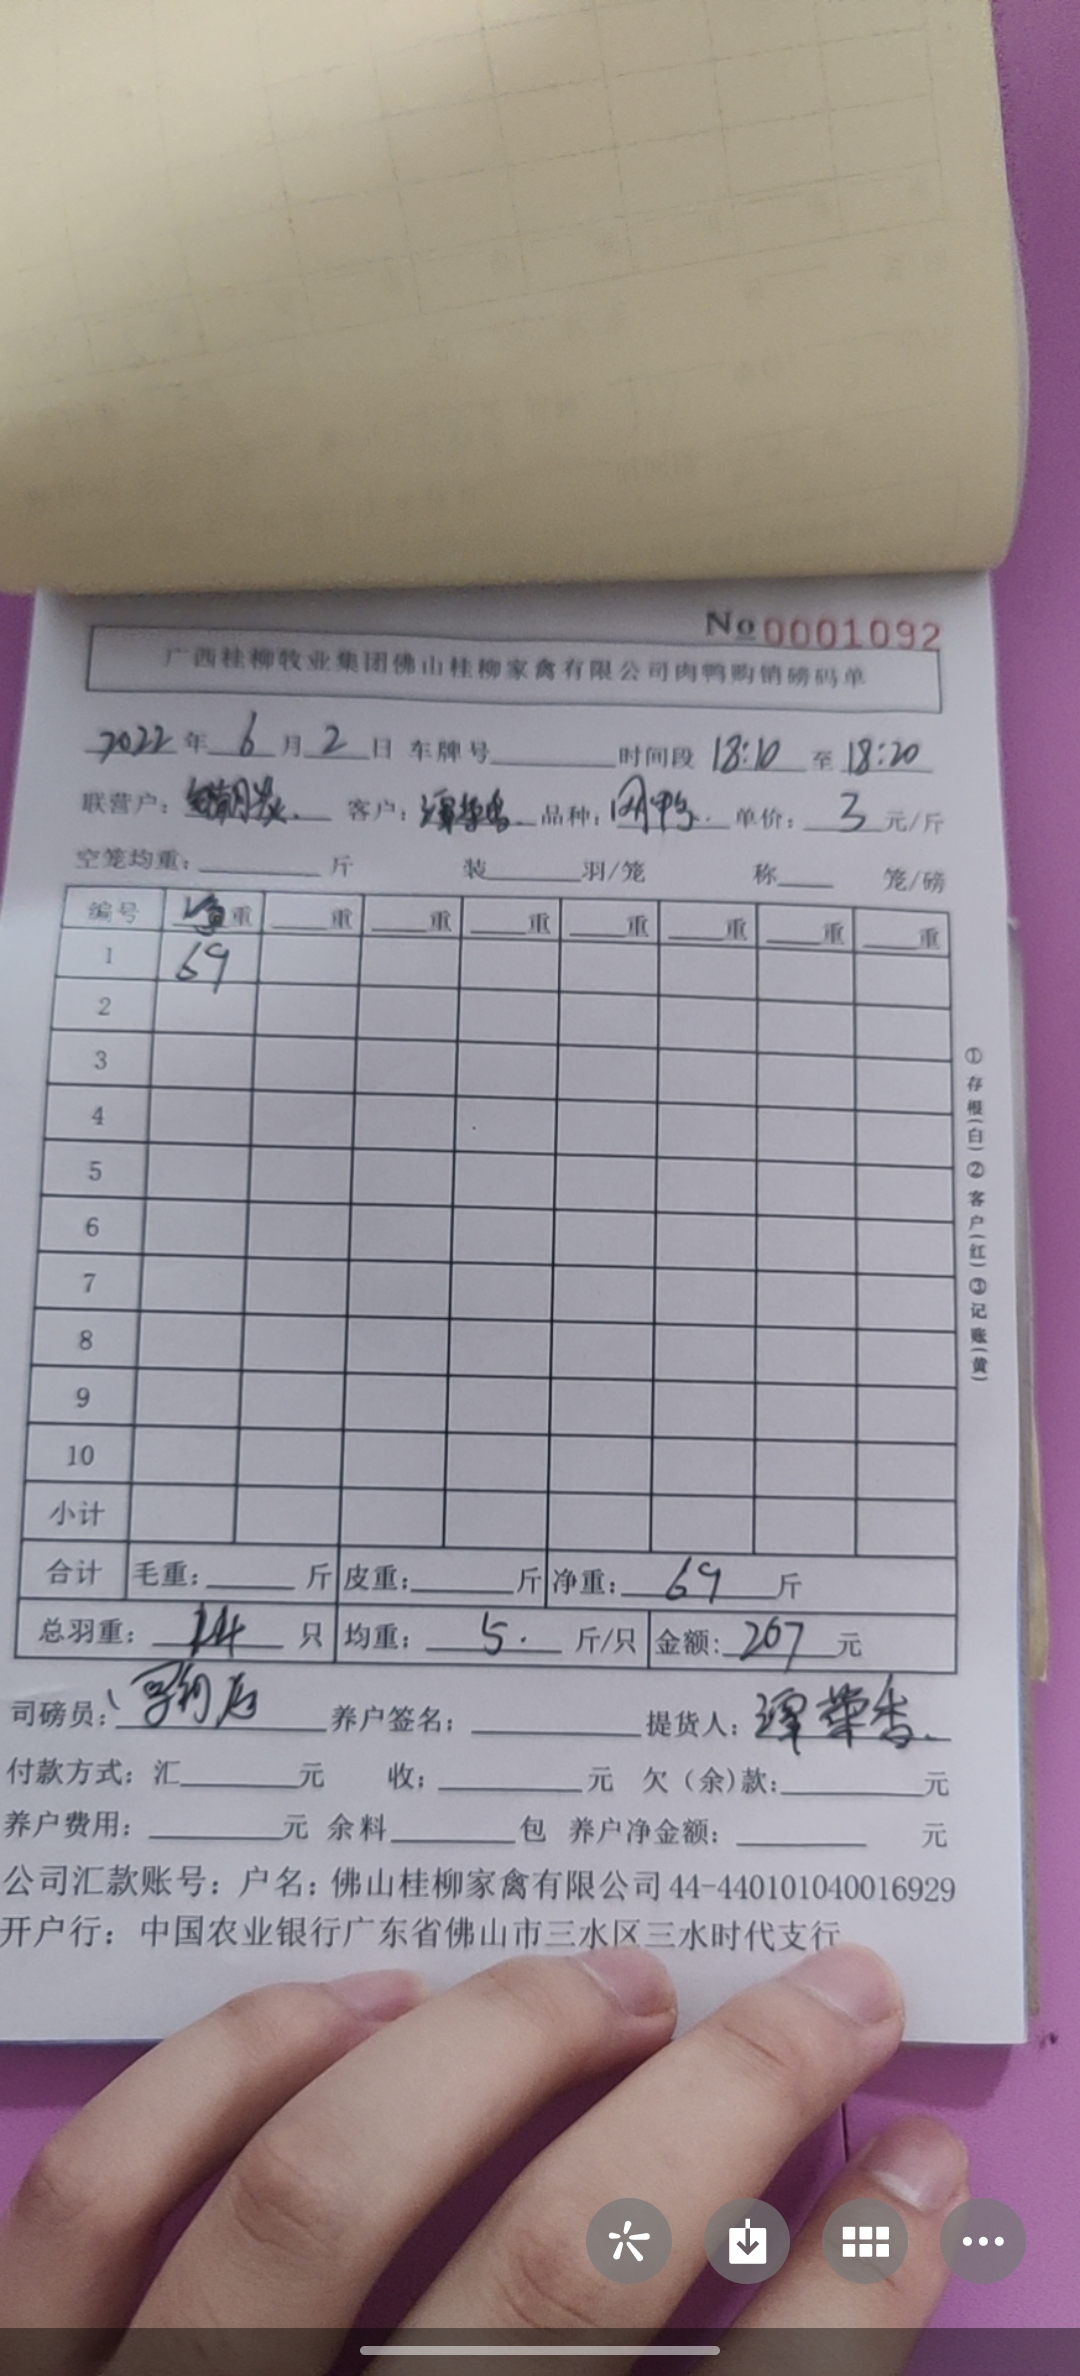 No 0001092
广西桂柳牧业集团佛山桂柳家禽有限公司肉鸭购销磅码单
2022年 6 月 2 日 车牌号 时间段 18:10 至 18:20
联营户: 客户: 谭荣香 品种: 肉鸭 单价: 3 元/斤
空笼均重: 斤 装 羽/笼 称 笼/磅
编号 重 重 重 重 重 重 重 重
1 69
2
3
4
5
6
7
8
9
10
小计
合计 毛重: 斤 皮重: 斤 净重: 69 斤
总羽重: 14 只 均重: 5. 斤/只 金额: 207 元
司磅员: 养户签名: 提货人: 谭荣香
付款方式: 汇 元 收: 元 欠(余)款: 元
养户费用: 元 余料 包 养户净金额: 元
公司汇款账号: 户名: 佛山桂柳家禽有限公司 44-440101040016929
开户行: 中国农业银行广东省佛山市三水区三水时代支行
①存根(白)②客户(红)③记账(黄)